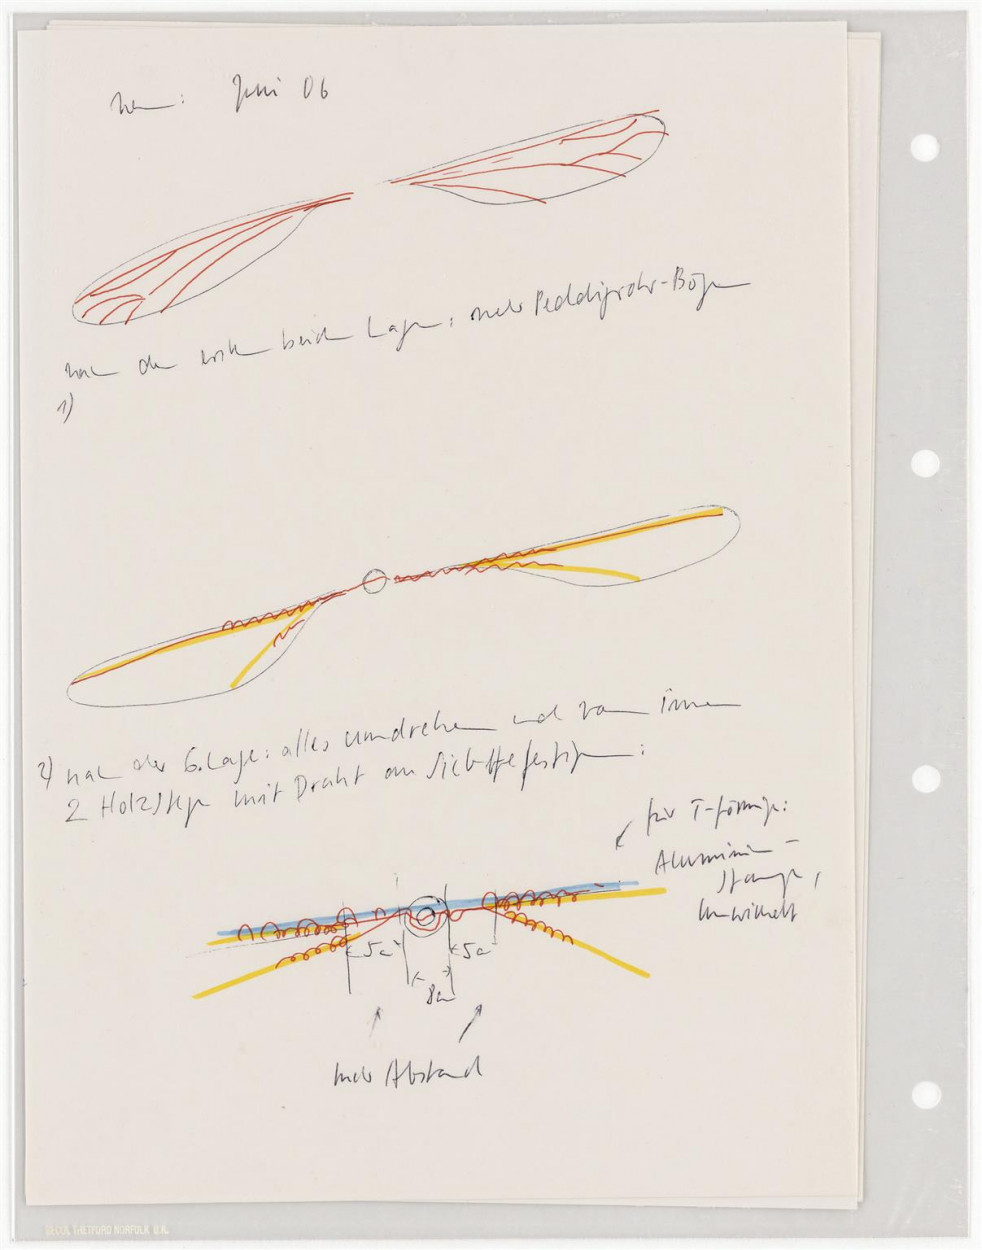 neu: Juni 06
nach den ersten beiden Lagen, mehr Peddigrohr-Bögen
1)
2) nach der 6. Lage: alles umdrehen und von innen
2 Holzstege mit Draht an befestigen:
für T-förmige:
Aluminium-
stange,
umwickelt
5cm 5cm
8cm
mehr Abstand
SECOL THETFORD NORFOLK U.K.